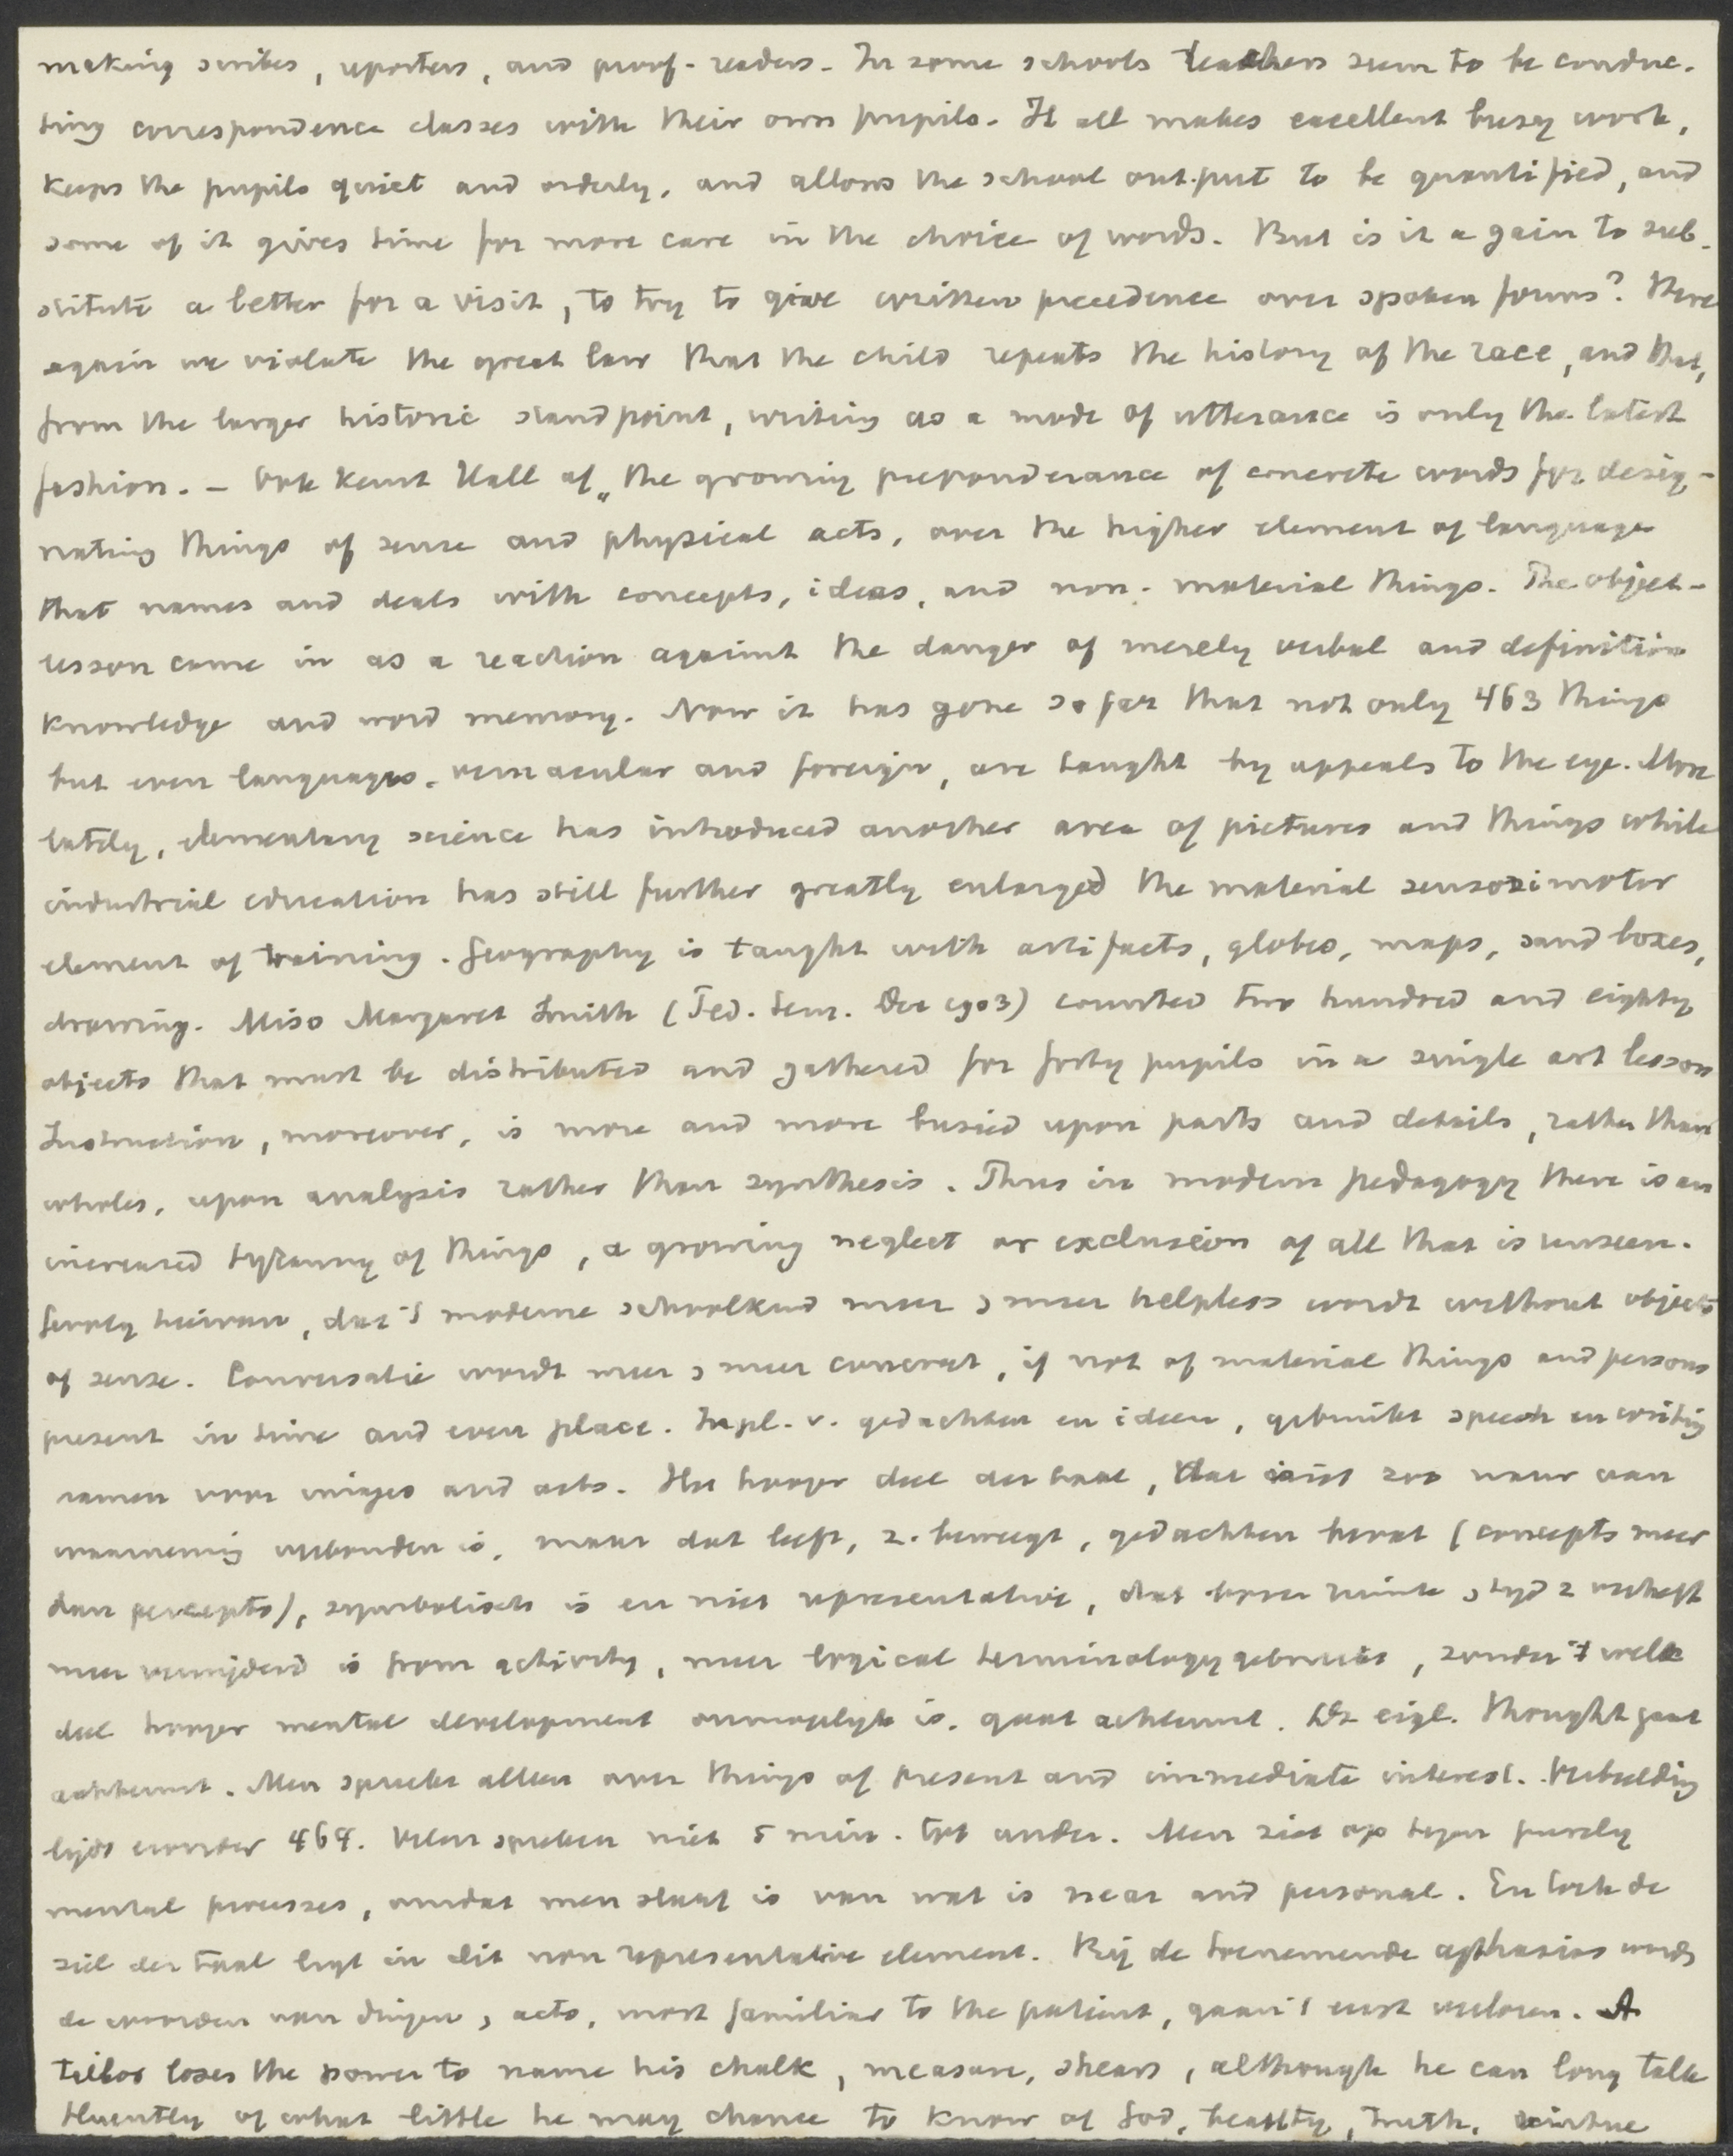 making scribes, reporters, and proof-readers. In some schools teachers seem to be conduc-
ting correspondence classes with their own pupils. It all makes excellent busy work,
keeps the pupils quiet and orderly, and allows the school out-put to be quantified, and
some of it gives time for more care in the choice of words. But is it a gain to sub-
stitute a letter for a visit, to try to give written precedence over spoken forms? Here
again we violate the great law that the child repeats the history of the race, and that,
from the larger historic standpoint, writing as a mode of utterance is only the latest
fashion. – Ook keurt Hall af „the growing preponderance of concrete words for desig-
nating things of sense and physical acts, over the higher element of language
that names and deals with concepts, ideas, and non-material things. The object-
lesson came in as a reaction against the danger of merely verbal and definition
knowledge and word memory. Now it has gone so far that not only 463 things
but even languages, vernacular and foreign, are taught by appeals to the eye. More
lately, elementary science has introduced another area of pictures and things while
industrial education has still further greatly enlarged the material sensorimotor
element of training. Geography is taught with artifacts, globes, maps, sand boxes,
drawing. Miss Margaret Smith (Ped. Sem. Dec 1903) counted two hundred and eighty
objects that must be distributed and gathered for forty pupils in a single art lesson
Instruction, moreover, is more and more busied upon parts and details, rather than
wholes, upon analysis rather than synthesis. Thus in modern pedagogy there is an
increased tyranny of things, a growing neglect or exclusion of all that is unseen.
Gevolg hiervan, dat 't moderne schoolkind meer en meer helpless wordt without objects
of sense. Conversatie wordt meer en meer concreet, if not of material things and persons
present in time and even place. In pl. v. gedachten en ideen, gebruikt speech en writing
namen voor images and acts. Het hooger deel der taal, dat niet zoo nauw aan
waarneming verbonden is, maar dat leeft, z. beweegt, gedachten bevat (concepts meer
dan percepts), symbolisch is en niet representative, dat boven ruimte en tijd z verheft
meer verwijderd is from activity, meer logical terminology gebruikt, zonder 't welk
deel hooger mental development onmogelijk is, gaat achteruit. De eigl. thought gaat
achteruit. Men spreekt alleen over things of present and immediate interest. Verbeelding
lijdt eronder 464. Velen spreken niet 5 min. tot ander. Men ziet op tegen purely
mental processes, omdat men slaaf is van wat is near and personal. En toch de
ziel der taal ligt in dit non representative element. Bij de toenemende aphasias words
de woorden van dingen en acts, most familiar to the patient, gaan 't eerst verloren. A
tailor loses the power to name his chalk, measure, shears, although he can long talk
fluently of what little he may chance to know of God, beauty, truth, virtue